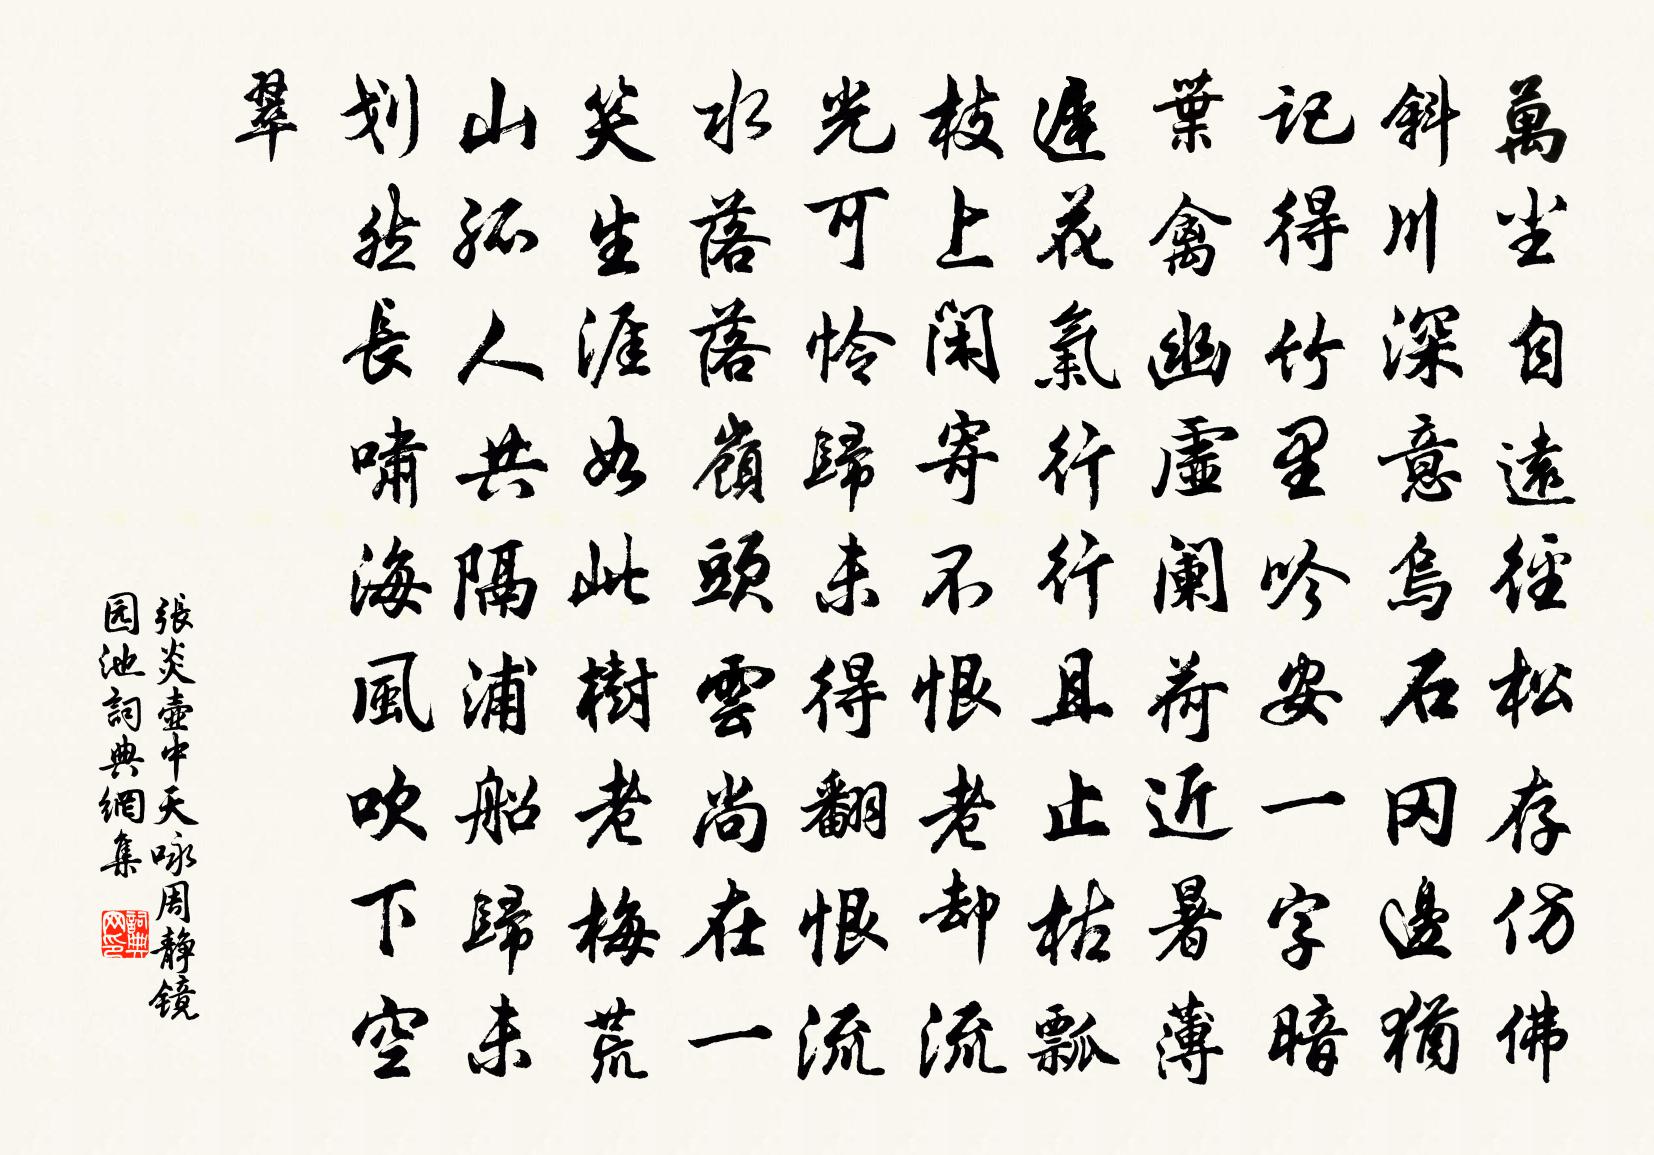 萬尘自遠徑松存仿佛
斜川深意烏石冈邊猶
记得竹里吟安一字暗
葉禽幽虛阑荷近暑薄
遲花氣行行且止枯瓢
枝上闲寄不恨老却流
光可怜歸未得翻恨流
水落落嶺頭雲尚在一
笑生涯如此樹老梅荒
山孤人共隔浦船歸未
划然長嘯海風吹下空
翠
張炎壺中天咏周静镜
园池詞典網集
詞典网印